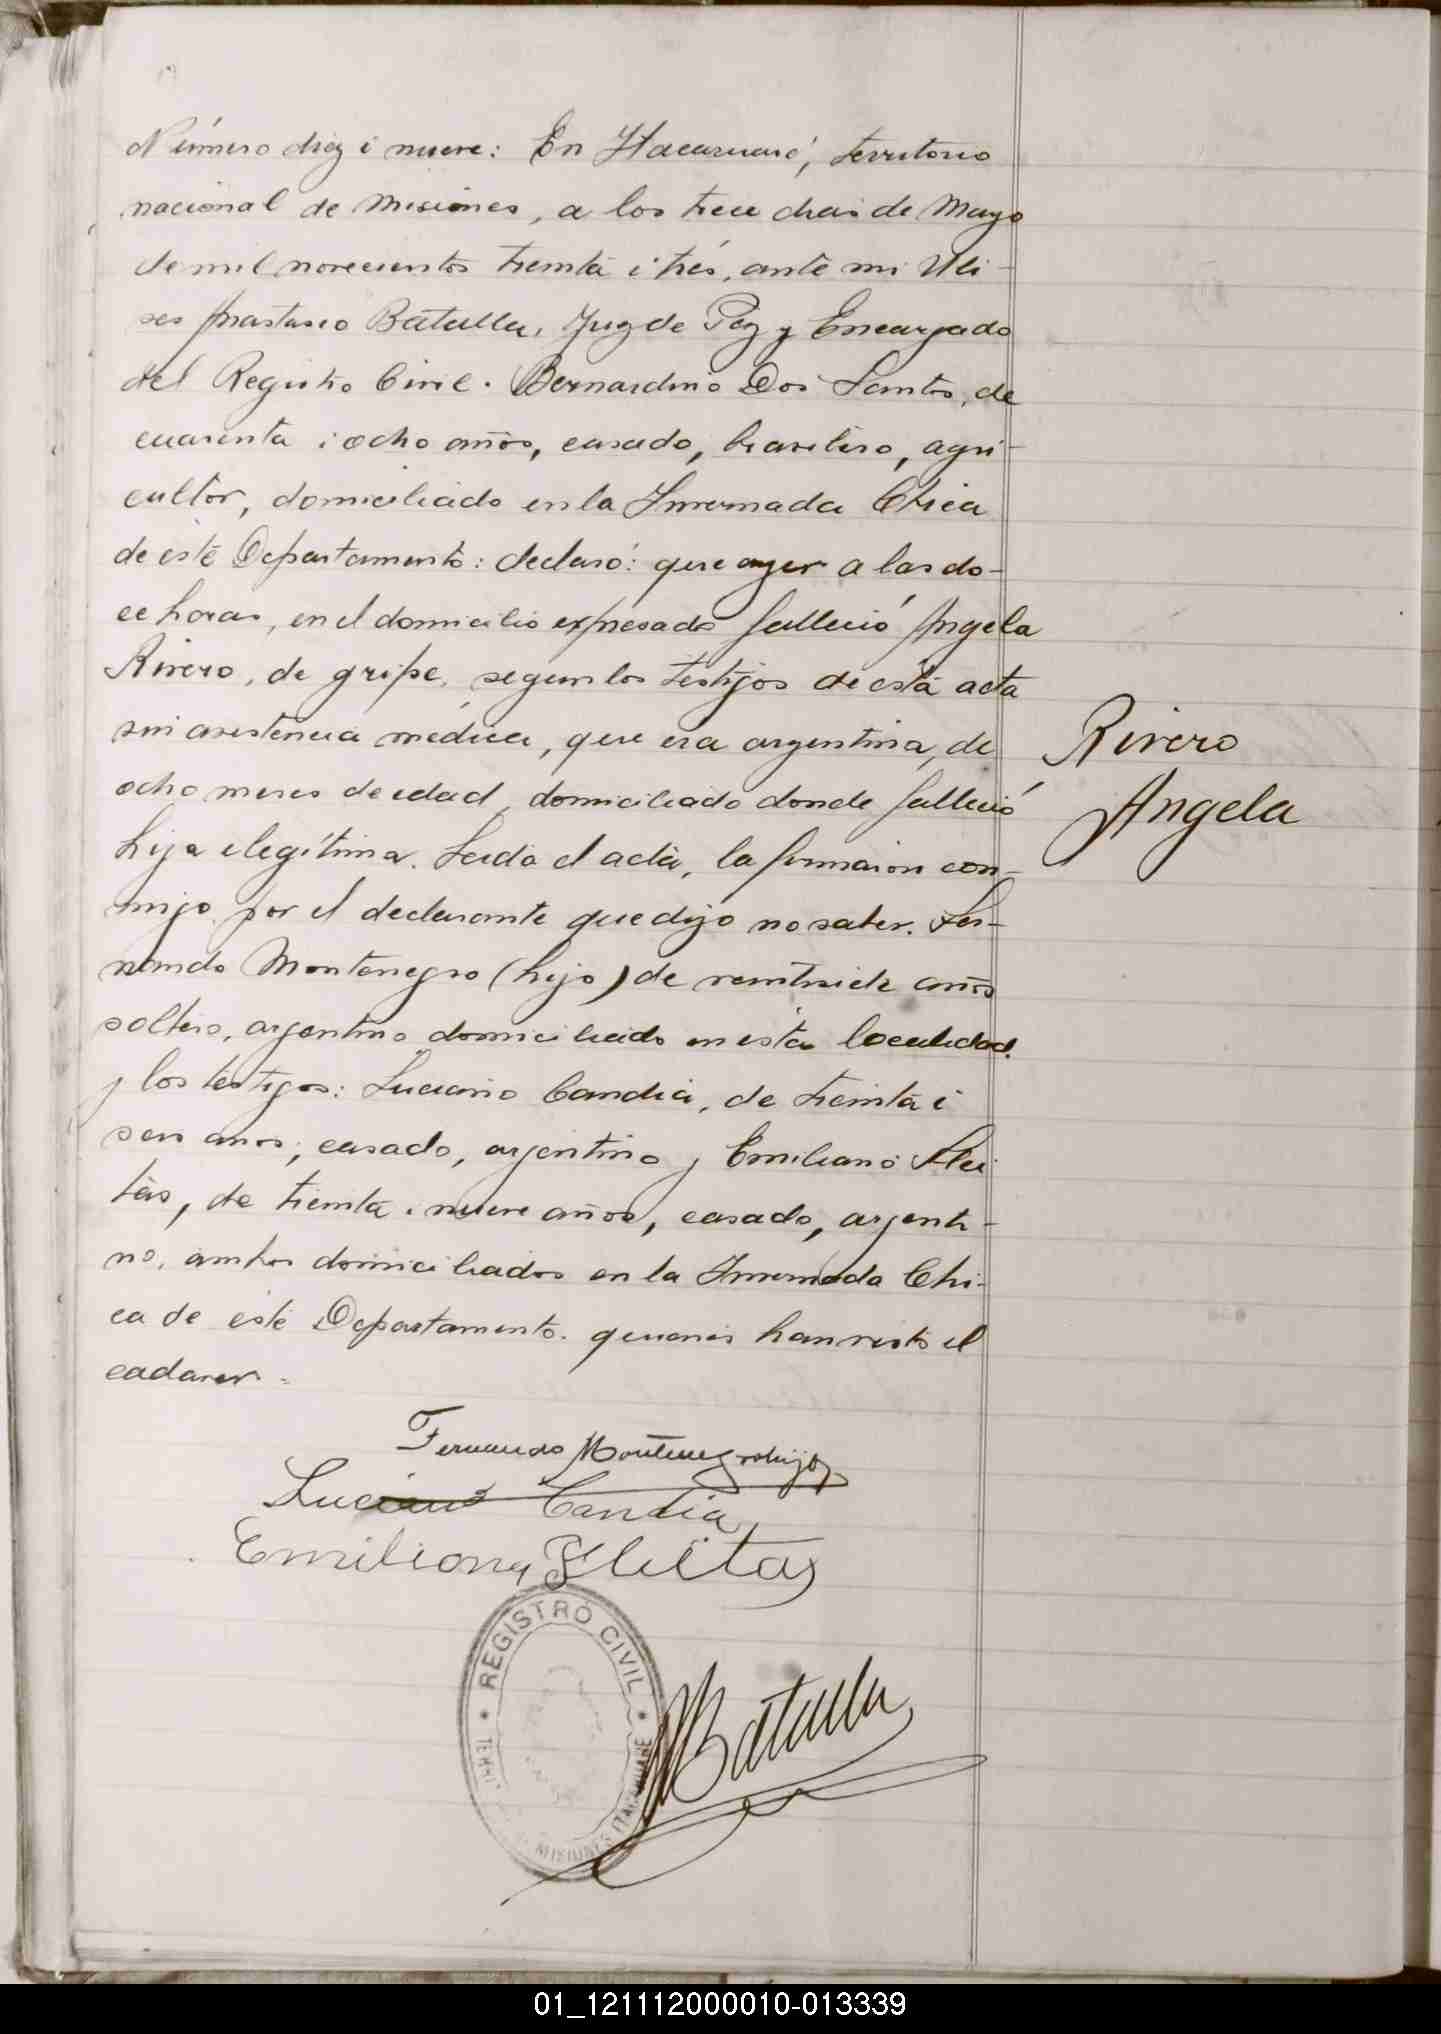 Número diez i nueve: En Itacaruaré, territorio
nacional de Misiones, a los trece dias de Mayo
de mil novecientos treinta i trés, ante mi Uli-
ses Anastasio Batalla, Juez de Paz y Encargado
del Registro Civil. Bernardino Dos Santos, de
cuarenta i ocho años, casado, brasilero, agri-
cultor, domiciliado en la Invernada Chica
de este Departamento: declaró: que ayer a las do-
ce horas, en el domicilio expresado falleció Angela
Rivero, de gripe, segun los testijos de esta acta
sin asistencia médica, que era argentina, de
ocho meses de edad, domiciliado donde falleció
hija ilegítima. Leida el acta, la firmaron con-
migo por el declarante que dijo no saber. Fer-
nando Montenegro (hijo) de veintisiete años
soltero, argentino domiciliado en esta localidad.
y los testigos: Luciano Candia, de treinta i
seis años, casado, argentino y Emiliano Flei
tas, de treinta i nueve años, casado, argenti-
no, ambos domiciliados en la Invernada Chi-
ca de este Departamento. quienes han visto el
cadaver.
Rivero
Angela
Fernando Montenegro hijo
Luciano Candia
Emiliano Fleitas
REGISTRO CIVIL
MISIONES ITACARUARE
Batalla
01_121112000010-013339